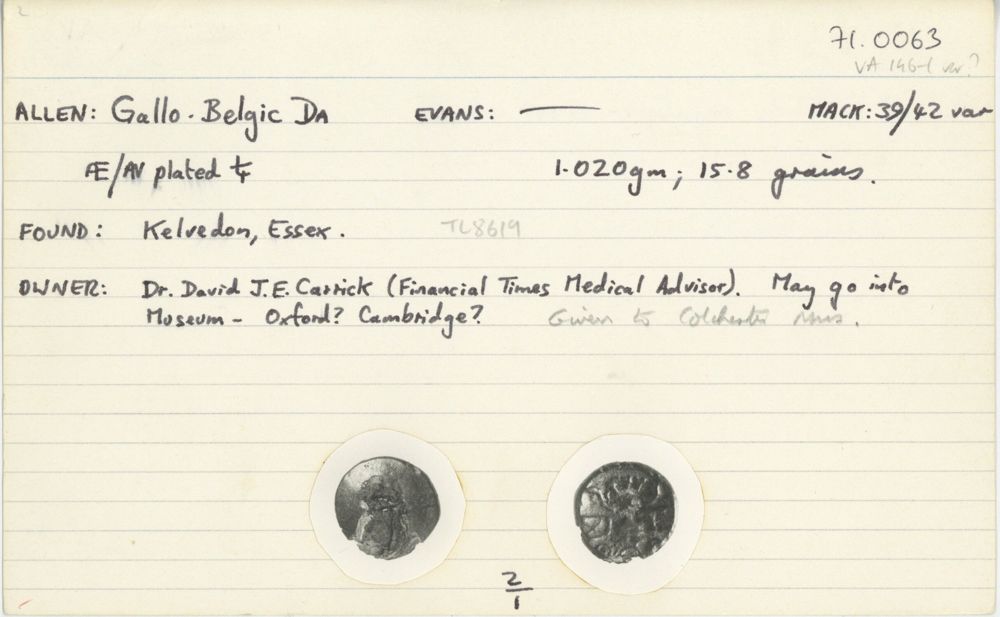 71.0063
VA 146-1 var?
ALLEN: Gallo-Belgic DA EVANS: — MACK: 39/42 var
Æ/AV plated ¼ 1.020gm; 15.8 grains.
FOUND: Kelvedon, Essex. TL8619
OWNER: Dr. David J.E. Carrick (Financial Times Medical Advisor). May go into
Museum - Oxford? Cambridge? Given to Colchester Mus.
2/1